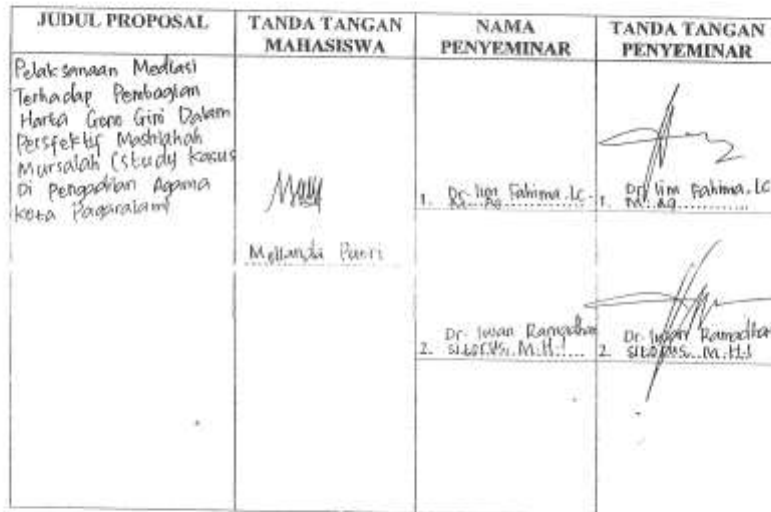 JUDUL PROPOSAL
TANDA TANGAN
MAHASISWA
NAMA
PENYEMINAR
TANDA TANGAN
PENYEMINAR
Pelaksanaan Mediasi
Terhadap Pembagian
Harta Gono Gini Dalam
Persfektif Mashlahah
Mursalah (Study Kasus
Di Pengadilan Agama
Kota Pagaralam)
Mellanda
1. Dr. Iim Fahima. Lc.
M. Ag
1. Dr. Iim Fahima. Lc
M. Ag
2. Dr. Iwan Ramadhan
Sitorus. M.H.I
2. Dr. Iwan Ramadhan
Sitorus. M.H.I